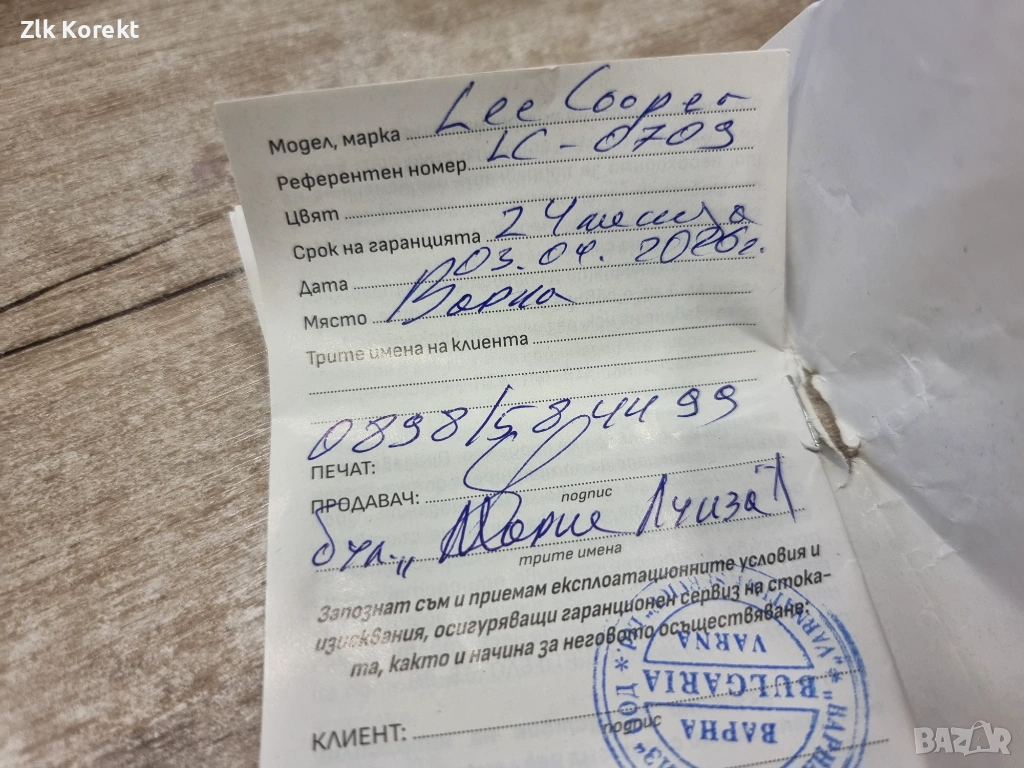 Zlk Korekt
Модел, марка Lee Cooper
Референтен номер LC - 0709
Цвят
Срок на гаранцията 24 месеца
Дата 03.04.2026г.
Място Варна
Трите имена на клиента
0898/584499
ПЕЧАТ:
ПРОДАВАЧ:
подпис
бул. „Мария Луиза"
трите имена
Запознат съм и приемам експлоатационните условия и
изисквания, осигуряващи гаранционен сервиз на стока-
та, както и начина за неговото осъществяване:
VARNA
BULGARIA
ВАРНА
КЛИЕНТ:
подпис
BAZAR